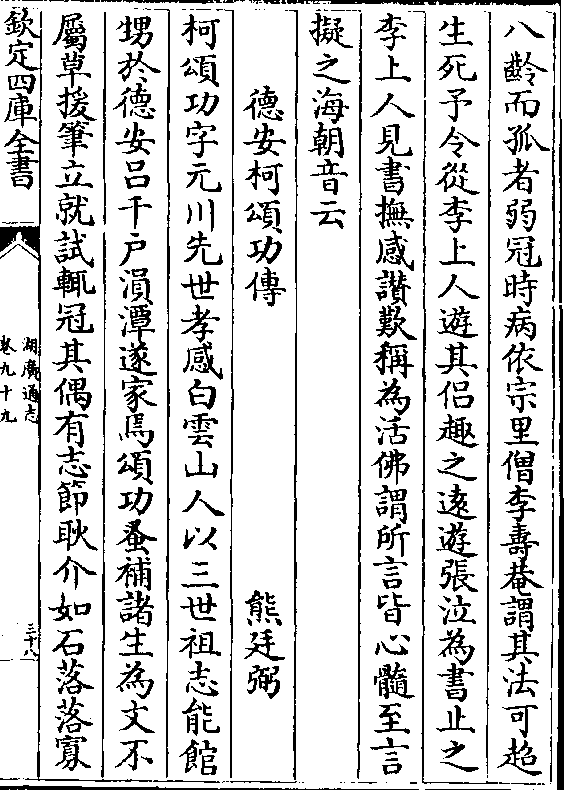 八齡而孤者弱冠時病依宗里僧李壽菴謂其法可超
生死予令從李上人遊其侣趣之遠遊張泣為書止之
李上人見書撫感讃歎稱為活佛謂所言皆心髓至言
擬之海朝音云
德安柯頌功傳　熊廷弼
柯頌功字元川先世孝感白雲山人以三世祖志能館
甥於德安吕千戸溳潭遂家焉頌功蚤補諸生為文不
屬草援筆立就試輒冠其偶有志節耿介如石落落寡
欽定四庫全書
湖廣通志
卷九十九
三十八